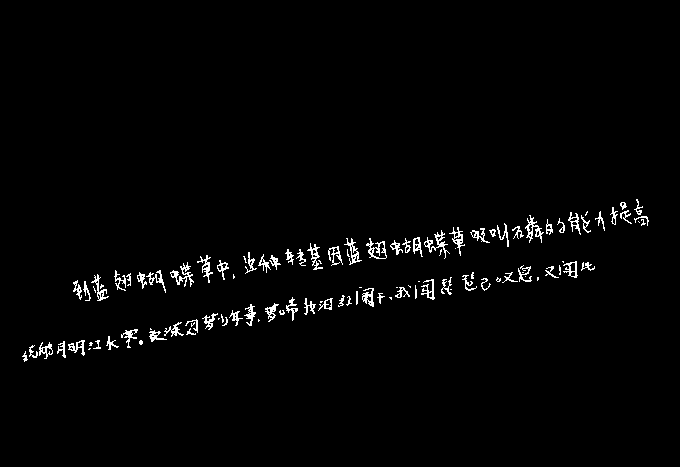 到蓝翅蝴蝶草中,这种转基因蓝翅蝴蝶草吸收磷的能力提高
绕船月明江水寒。夜深忽梦少年事,梦啼妆泪红阑干,我闻琵琶已叹息,又闻此